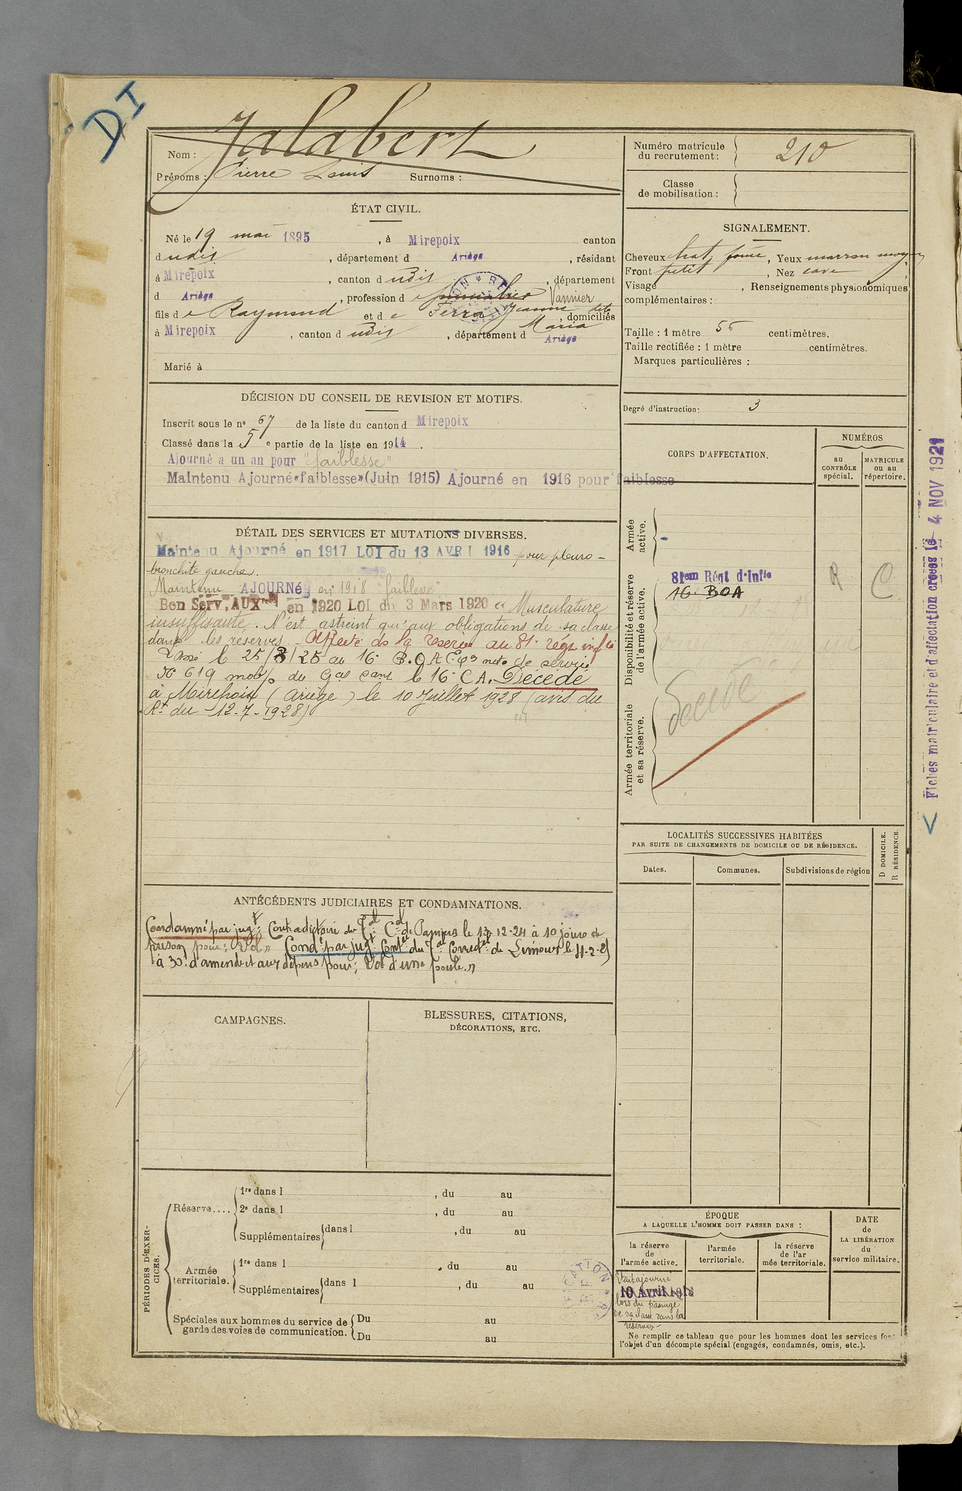 DI
Nom : Jalabert
Prénoms : Pierre Louis Surnoms :
Numéro matricule du recrutement : 210
Classe de mobilisation :
ÉTAT CIVIL.
Né le 19 mai 1895, à Mirepoix canton
d udis, département d Ariège, résidant
à Mirepoix, canton d udis, département
d Ariège, profession d e Vannier
fils d e Raymond et d e Ferra Jeanne dite Maria, domiciliés
à Mirepoix, canton d udis, département d Ariège
Marié à
SIGNALEMENT.
Cheveux chat. foncé, Yeux marron moyen
Front petit, Nez cave
Visage , Renseignements physionomiques
complémentaires :
Taille : 1 mètre 55 centimètres.
Taille rectifiée : 1 mètre centimètres.
Marques particulières :
Degré d'instruction : 3
DÉCISION DU CONSEIL DE REVISION ET MOTIFS.
Inscrit sous le n° 67 de la liste du canton d Mirepoix
Classé dans la 5e partie de la liste en 1914.
Ajourné a un an pour "faiblesse"
Maintenu Ajourné «faiblesse» (Juin 1915) Ajourné en 1916 pour faiblesse
CORPS D'AFFECTATION.
NUMÉROS
au CONTRÔLE spécial.
MATRICULE ou au répertoire.
Armée active.
Disponibilité et réserve de l'armée active.
81em Régt d'Infie
16. BOA
R C
Armée territoriale et sa réserve.
Décédé
Fiches matriculaire et d'affectation créées le 4 NOV 1921
DÉTAIL DES SERVICES ET MUTATIONS DIVERSES.
Maintenu Ajourné en 1917 LOI du 13 AVRI 1916 pour pleuro-
bronchite gauche.
Maintenu AJOURNé en 1918 "faiblesse"
Bon Serv. AUXre en 1920 LOI du 3 Mars 1920 "Musculature
insuffisante. N'est astreint qu'aux obligations de sa classe
dans les réserves. Affecté ds la réserve au 81e régt infie
Passé le 25/8/25 au 16e B.O.A.
N° 619 mob/o du Gal Cant le 16e C.A. Décédé
à Mirepoix (Ariège) le 10 Juillet 1928 (avis du
Rt du 12-7-1928)
LOCALITÉS SUCCESSIVES HABITÉES
PAR SUITE DE CHANGEMENTS DE DOMICILE OU DE RÉSIDENCE.
Dates. Communes. Subdivisions de région
D. DOMICILE. R. RÉSIDENCE.
ANTÉCÉDENTS JUDICIAIRES ET CONDAMNATIONS.
Condamné par jugt Contradictoire du Tal Cel de Pamiers le 13-12-24 à 10 jours de
prison pour: Vol. Cond. par jugt Contre du Tal Correctel de Limoux le 11-2-25
à 30f d'amende et aux dépens pour; Vol d'une poule.
CAMPAGNES.
BLESSURES, CITATIONS,
DÉCORATIONS, ETC.
PÉRIODES D'EXERCICES.
Réserve.... 1re dans l , du au
2e dans l , du au
Supplémentaires dans l , du au
Armée territoriale. 1re dans l , du au
Supplémentaires dans l , du au
Spéciales aux hommes du service de garde des voies de communication. Du au
Du au
ÉPOQUE
A LAQUELLE L'HOMME DOIT PASSER DANS :
la réserve de l'armée active.
l'armée territoriale.
la réserve de l'armée territoriale.
DATE de LA LIBÉRATION du service militaire.
Était ajourné
10 Avril 1918
lors du passage
de sa classe dans la
réserve
Ne remplir ce tableau que pour les hommes dont les services font
l'objet d'un décompte spécial (engagés, condamnés, omis, etc.).